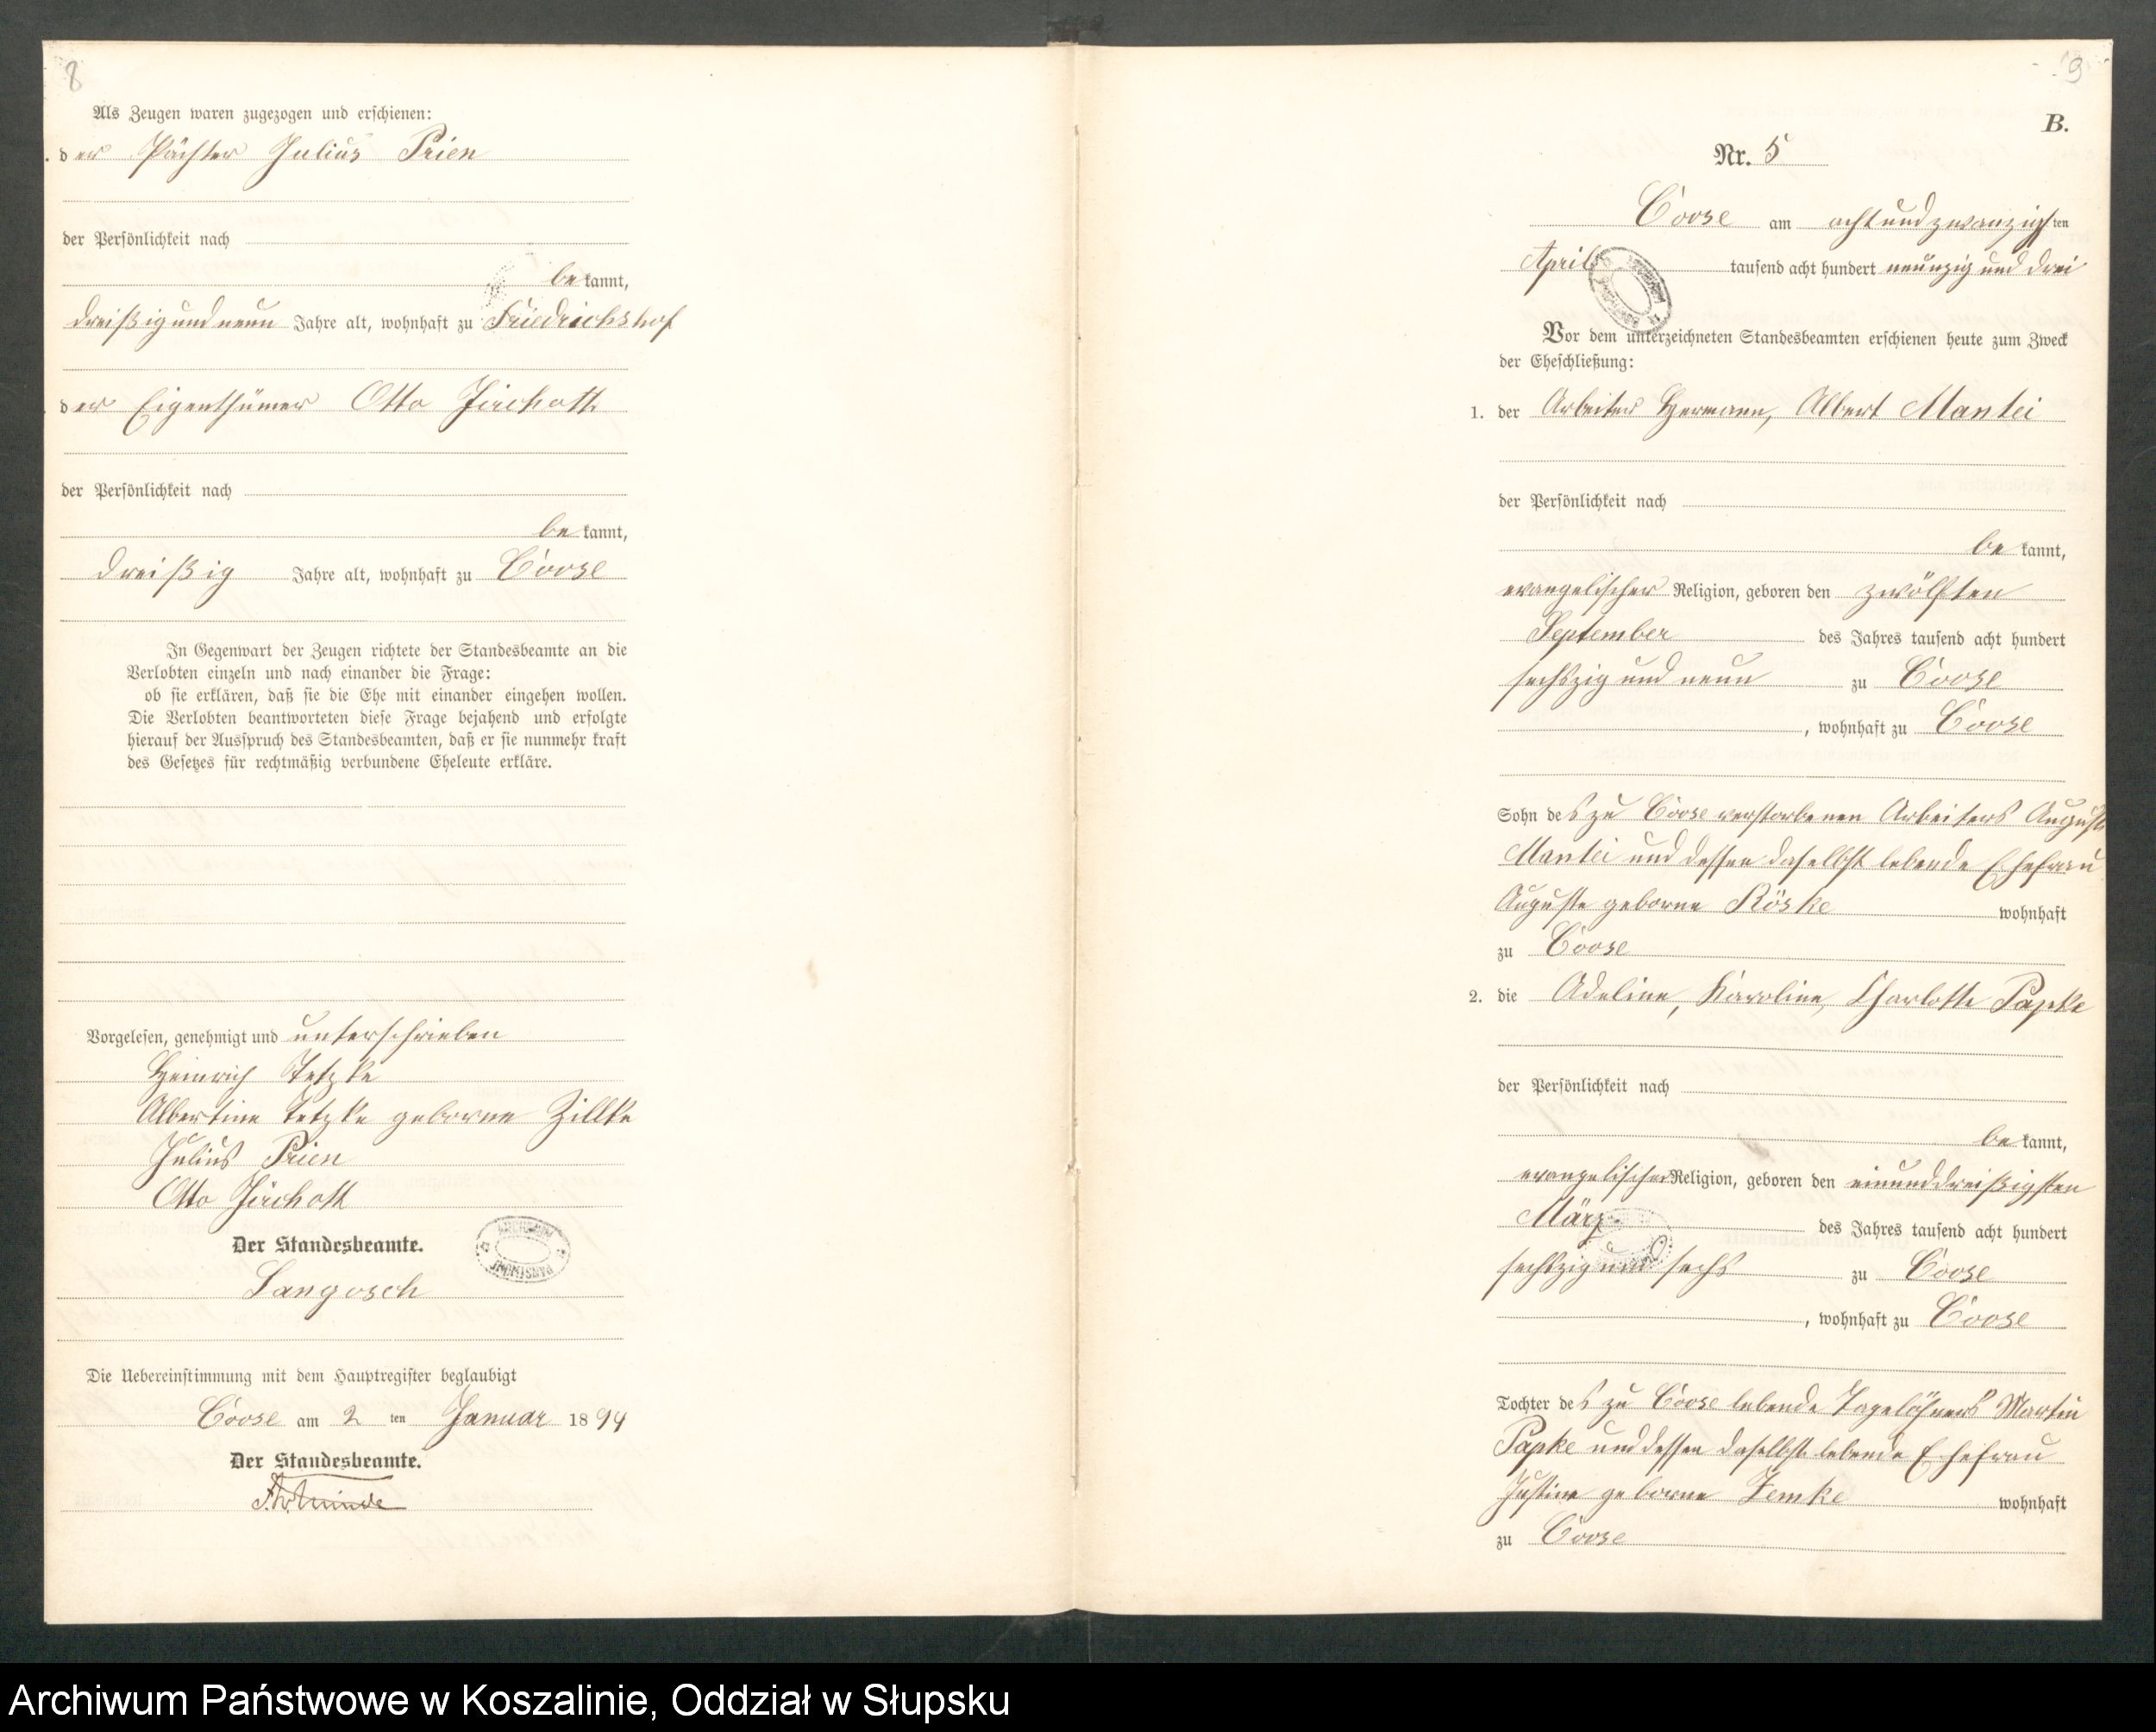 8
Als Zeugen waren zugezogen und erschienen:
der Pächter Julius Prien
der Persönlichkeit nach
bekannt,
dreißig und neun Jahre alt, wohnhaft zu Friedrichshof
der Eigenthümer Otto Jirchott
der Persönlichkeit nach
bekannt,
dreißig Jahre alt, wohnhaft zu Coose
In Gegenwart der Zeugen richtete der Standesbeamte an die
Verlobten einzeln und nach einander die Frage:
ob sie erklären, daß sie die Ehe mit einander eingehen wollen.
Die Verlobten beantworteten diese Frage bejahend und erfolgte
hierauf der Ausspruch des Standesbeamten, daß er sie nunmehr kraft
des Gesetzes für rechtmäßig verbundene Eheleute erkläre.
Vorgelesen, genehmigt und unterschrieben
Heinrich Tetzke
Albertine Tetzke geborne Zillke
Julius Prien
Otto Jirchott
Der Standesbeamte.
Langosch
Die Uebereinstimmung mit dem Hauptregister beglaubigt
Coose am 2 ten Januar 1894
Der Standesbeamte.
9
B.
Nr. 5
Coose am achtundzwanzigsten
April tausend acht hundert neunzig und drei
Vor dem unterzeichneten Standesbeamten erschienen heute zum Zweck
der Eheschließung:
1. der Arbeiter Hermann, Albert Mantei
der Persönlichkeit nach
bekannt,
evangelischer Religion, geboren den zwölften
September des Jahres tausend acht hundert
sechszig und neun zu Coose
, wohnhaft zu Coose
Sohn des zu Coose verstorbenen Arbeiters August
Mantei und dessen daselbst lebende Ehefrau
Auguste geborne Röske wohnhaft
zu Coose
2. die Adeline, Karoline, Charlotte Papke
der Persönlichkeit nach
bekannt,
evangelischer Religion, geboren den einunddreißigsten
März des Jahres tausend acht hundert
sechszig und sechs zu Coose
, wohnhaft zu Coose
Tochter des zu Coose lebende Tagelöhners Martin
Papke und dessen daselbst lebende Ehefrau
Justine geborne Zemke wohnhaft
zu Coose
Archiwum Państwowe w Koszalinie, Oddział w Słupsku